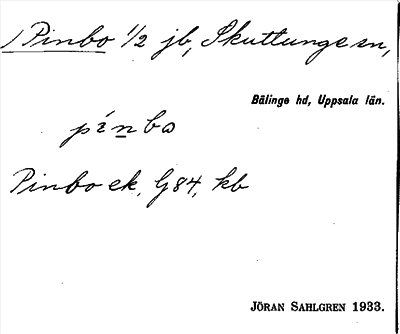 Pinbo 1/2 jb, Skuttunge sn,
Bälinge hd, Uppsala län.
pínbo
Pinbo ek, G84, kb
JÖRAN SAHLGREN 1933.